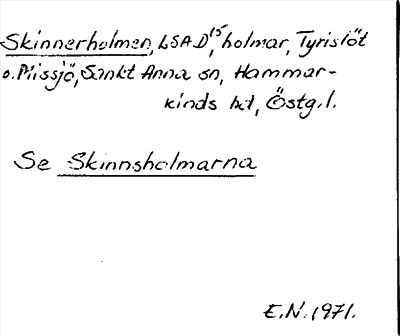 Skinnerholmen, LSAD15, holmar, Tyrislöt
o. Piissjö, Sankt Anna sn, Hammar-
kinds hd, Östg.l.
Se Skinnsholmarna
E.N. 1971.